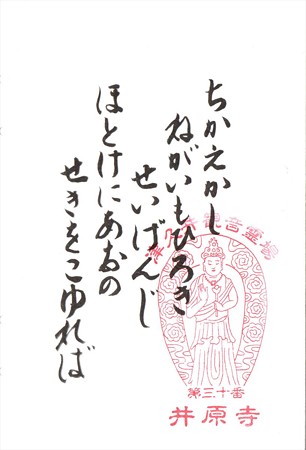 ちかえかし
ねがいもひろき
せいげんじ
ほとけにあおの
せきをこゆれば
津久井観音霊場
第三十番
井原寺